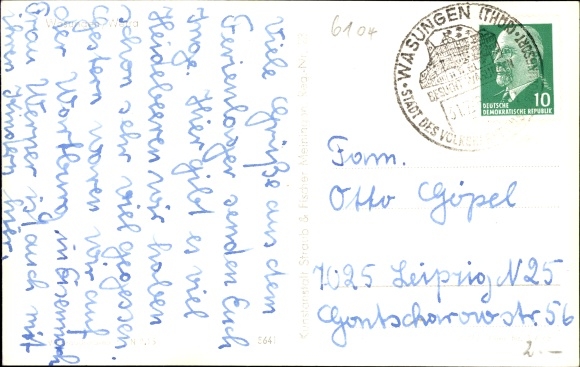 Viele Grüße aus dem
Ferienlager senden Euch
Inge. Hier gibt es viel
Heidelbeeren wir haben
schon sehr viel gegessen.
Gestern waren wir auf
der Wartburg in Eisenach
Frau Werner ist auch mit
ihren Kindern hier.
6104
WASUNGEN (THÜR)
STADT DES VOLKS
DEUTSCHE
DEMOKRATISCHE REPUBLIK
10
Fam.
Otto Göpel
7025 Leipzig N 25
Gontscharowstr. 56
2.—
Straub & Fischer Meiningen